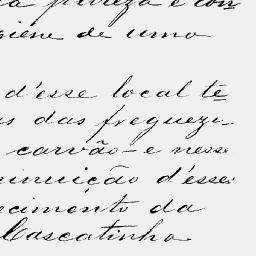 a pureza e con
giene de uma
d'esse local tê
as das freguezi-
carvão - e nesse
minuição d'esses
ecimento da
Cascatinha